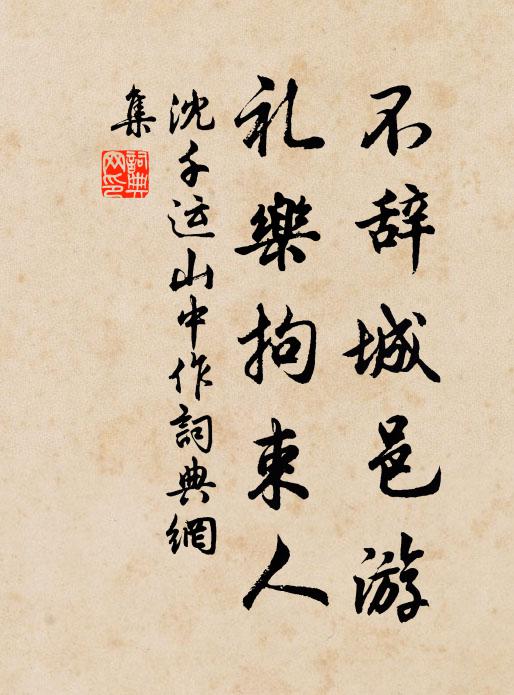 不辞城邑游
礼樂拘束人
沈千运山中作詞典網
集
詞典
网印